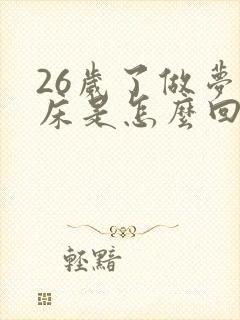 26歲了做夢
床是怎麼回
輕黯